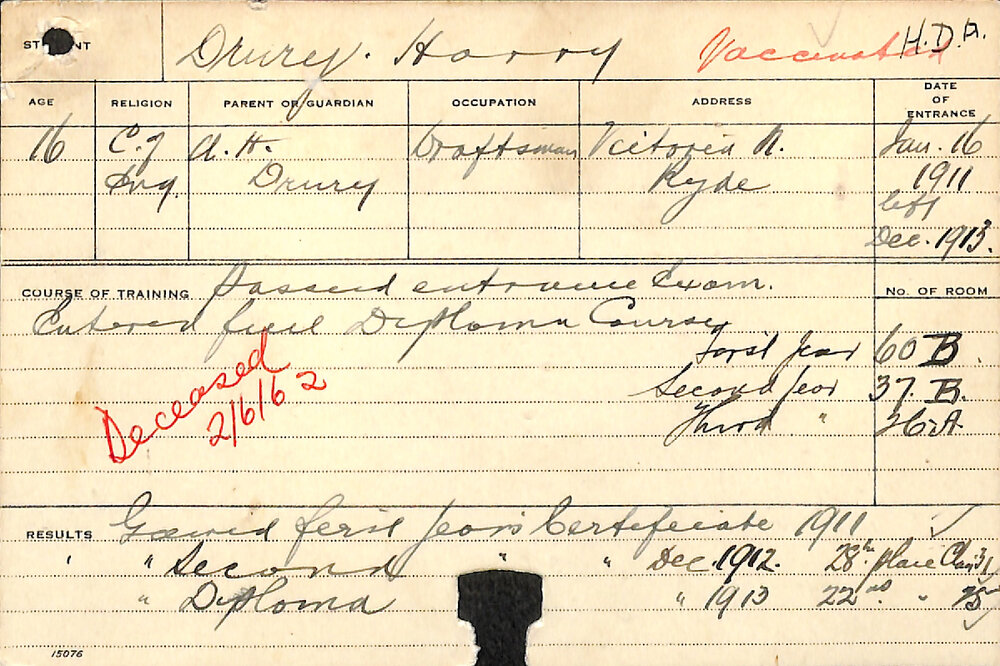 STUDENT Drury. Harry Vaccinated H.D.A.
AGE RELIGION PARENT OR GUARDIAN OCCUPATION ADDRESS DATE OF ENTRANCE
16 C. of A. H. Draftsman Victoria R. Jan. 16
Eng. Drury Ryde 1911
left
Dec. 1913.
COURSE OF TRAINING Passed entrance Exam. No. OF ROOM
Entered full Diploma Course
First Year 60 B.
Deceased Second Year 37. B.
2/6/62 Third " 36-A.
RESULTS Gained first Year's Certificate 1911 ✓
" " Second " " Dec. 1912. 28th place Class
" Diploma " 1913 22nd. "
15076